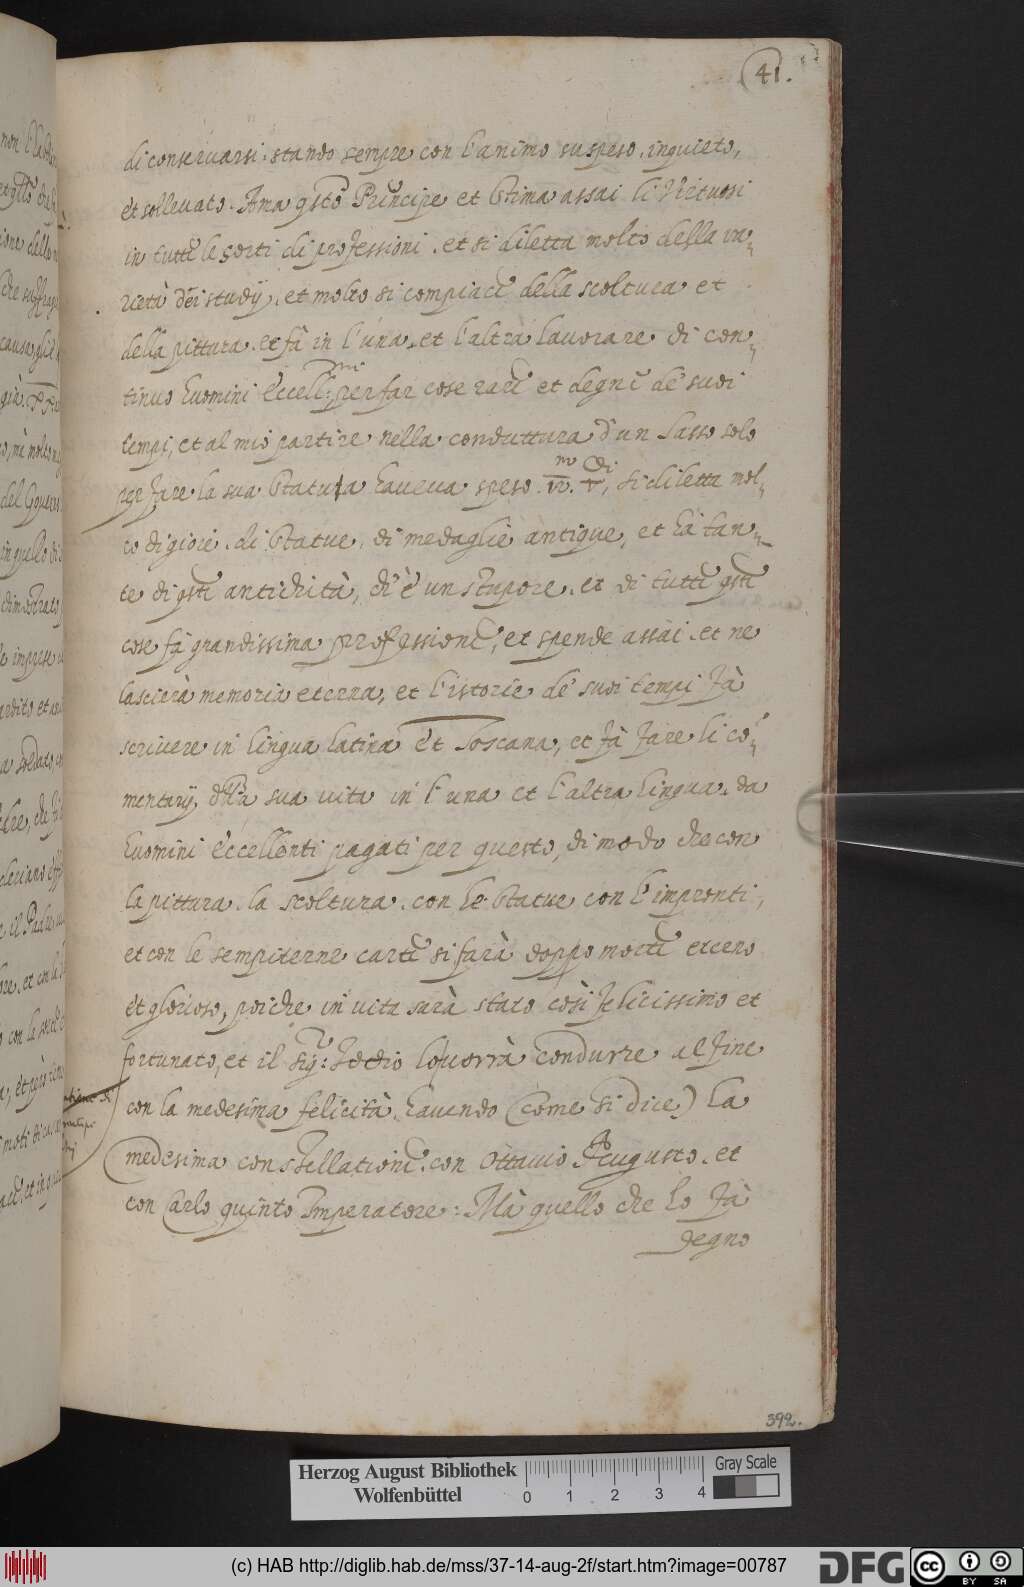 41.
di conseruarsi: stando sempre con l'animo suspeso, inquieto,
et solleuato. Ama qsto Principe et stima assai li Virtuosi
in tutte le sorti di professioni, et si diletta molto della va-
rietà dei studÿ, et molto si compiace della scoltura et
della pittura, et fà in l'una, et l'altra lauorare di con-
tinuo huomini eccell:mi per far cose rare et degne de suoi
tempi, et al mio partire nella conduttura d'un sasso solo
per fare la sua statuta haueua speso. si diletta mol-
to di gioie, di statue, di medaglie antique, et hà tan-
te di qste antichità, ch'è un stupore, et di tutte qste
cose fà grandissima professione, et spende assai, et ne
lascierà memoria eterna, et l'istorie de suoi tempi fà
scriuere in lingua latina et Toscana, et fà fare li co-
mentarÿ, dlla sua uita in l'una et l'altra lingua, da
huomini eccellenti pagati per questo, di modo che con
la pittura, la scoltura, con le statue con l'impronti,
et con le sempiterne carte si farà doppo morte eterno
et glorioso, poiche in uita sarà stato così felicissimo et
fortunato, et il sigr: Iddio lo uorrà condurre al fine
con la medesima felicità, hauendo (come si dice) la
medesima constellatione, con Ottauio Augusto, et
con Carlo quinto Imperatore: Mà quello che lo fà
degno
392.
Herzog August Bibliothek
Wolfenbüttel
0 1 2 3 4
Gray Scale
(c) HAB http://diglib.hab.de/mss/37-14-aug-2f/start.htm?image=00787
DFG
cc BY SA